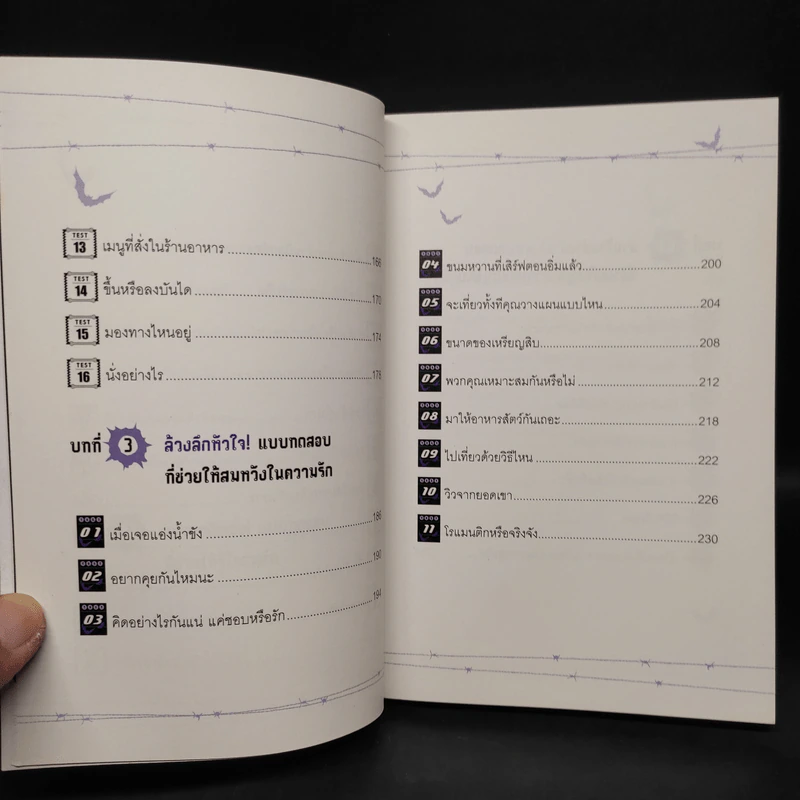 TEST 13 เมนูที่สั่งในร้านอาหาร 166
TEST 14 ขึ้นหรือลงบันได 170
TEST 15 มองทางไหนอยู่ 174
TEST 16 นั่งอย่างไร 178
บทที่ 3 ล้วงลึกหัวใจ! แบบทดสอบ
ที่ช่วยให้สมหวังในความรัก
01 เมื่อเจอแอ่งน้ำขัง 186
02 อยากคุยกันไหมนะ 190
03 คิดอย่างไรกันแน่ แค่ชอบหรือรัก 194
04 ขนมหวานที่เสิร์ฟตอนอิ่มแล้ว 200
05 จะเที่ยวทั้งทีคุณวางแผนแบบไหน 204
06 ขนาดของเหรียญสิบ 208
07 พวกคุณเหมาะสมกันหรือไม่ 212
08 มาให้อาหารสัตว์กันเถอะ 218
09 ไปเที่ยวด้วยวิธีไหน 222
10 วิวจากยอดเขา 226
11 โรแมนติกหรือจริงจัง 230